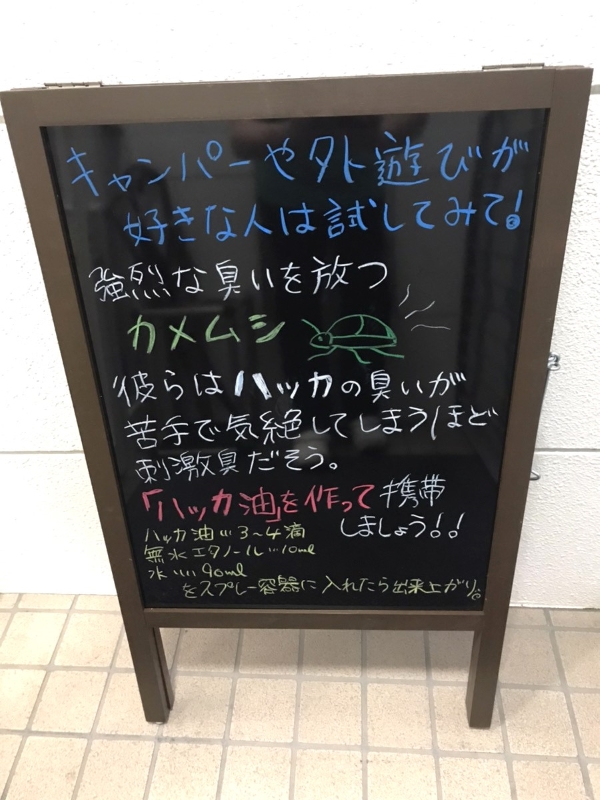 キャンパーや外遊びが
好きな人は試してみて!
強烈な臭いを放つ
カメムシ
彼らはハッカの臭いが
苦手で気絶してしまうほど
刺激臭だそう。
「ハッカ油」を作って携帯
しましょう!!
ハッカ油…3~4滴
無水エタノール…10ml
水…90ml
をスプレー容器に入れたら出来上がり。